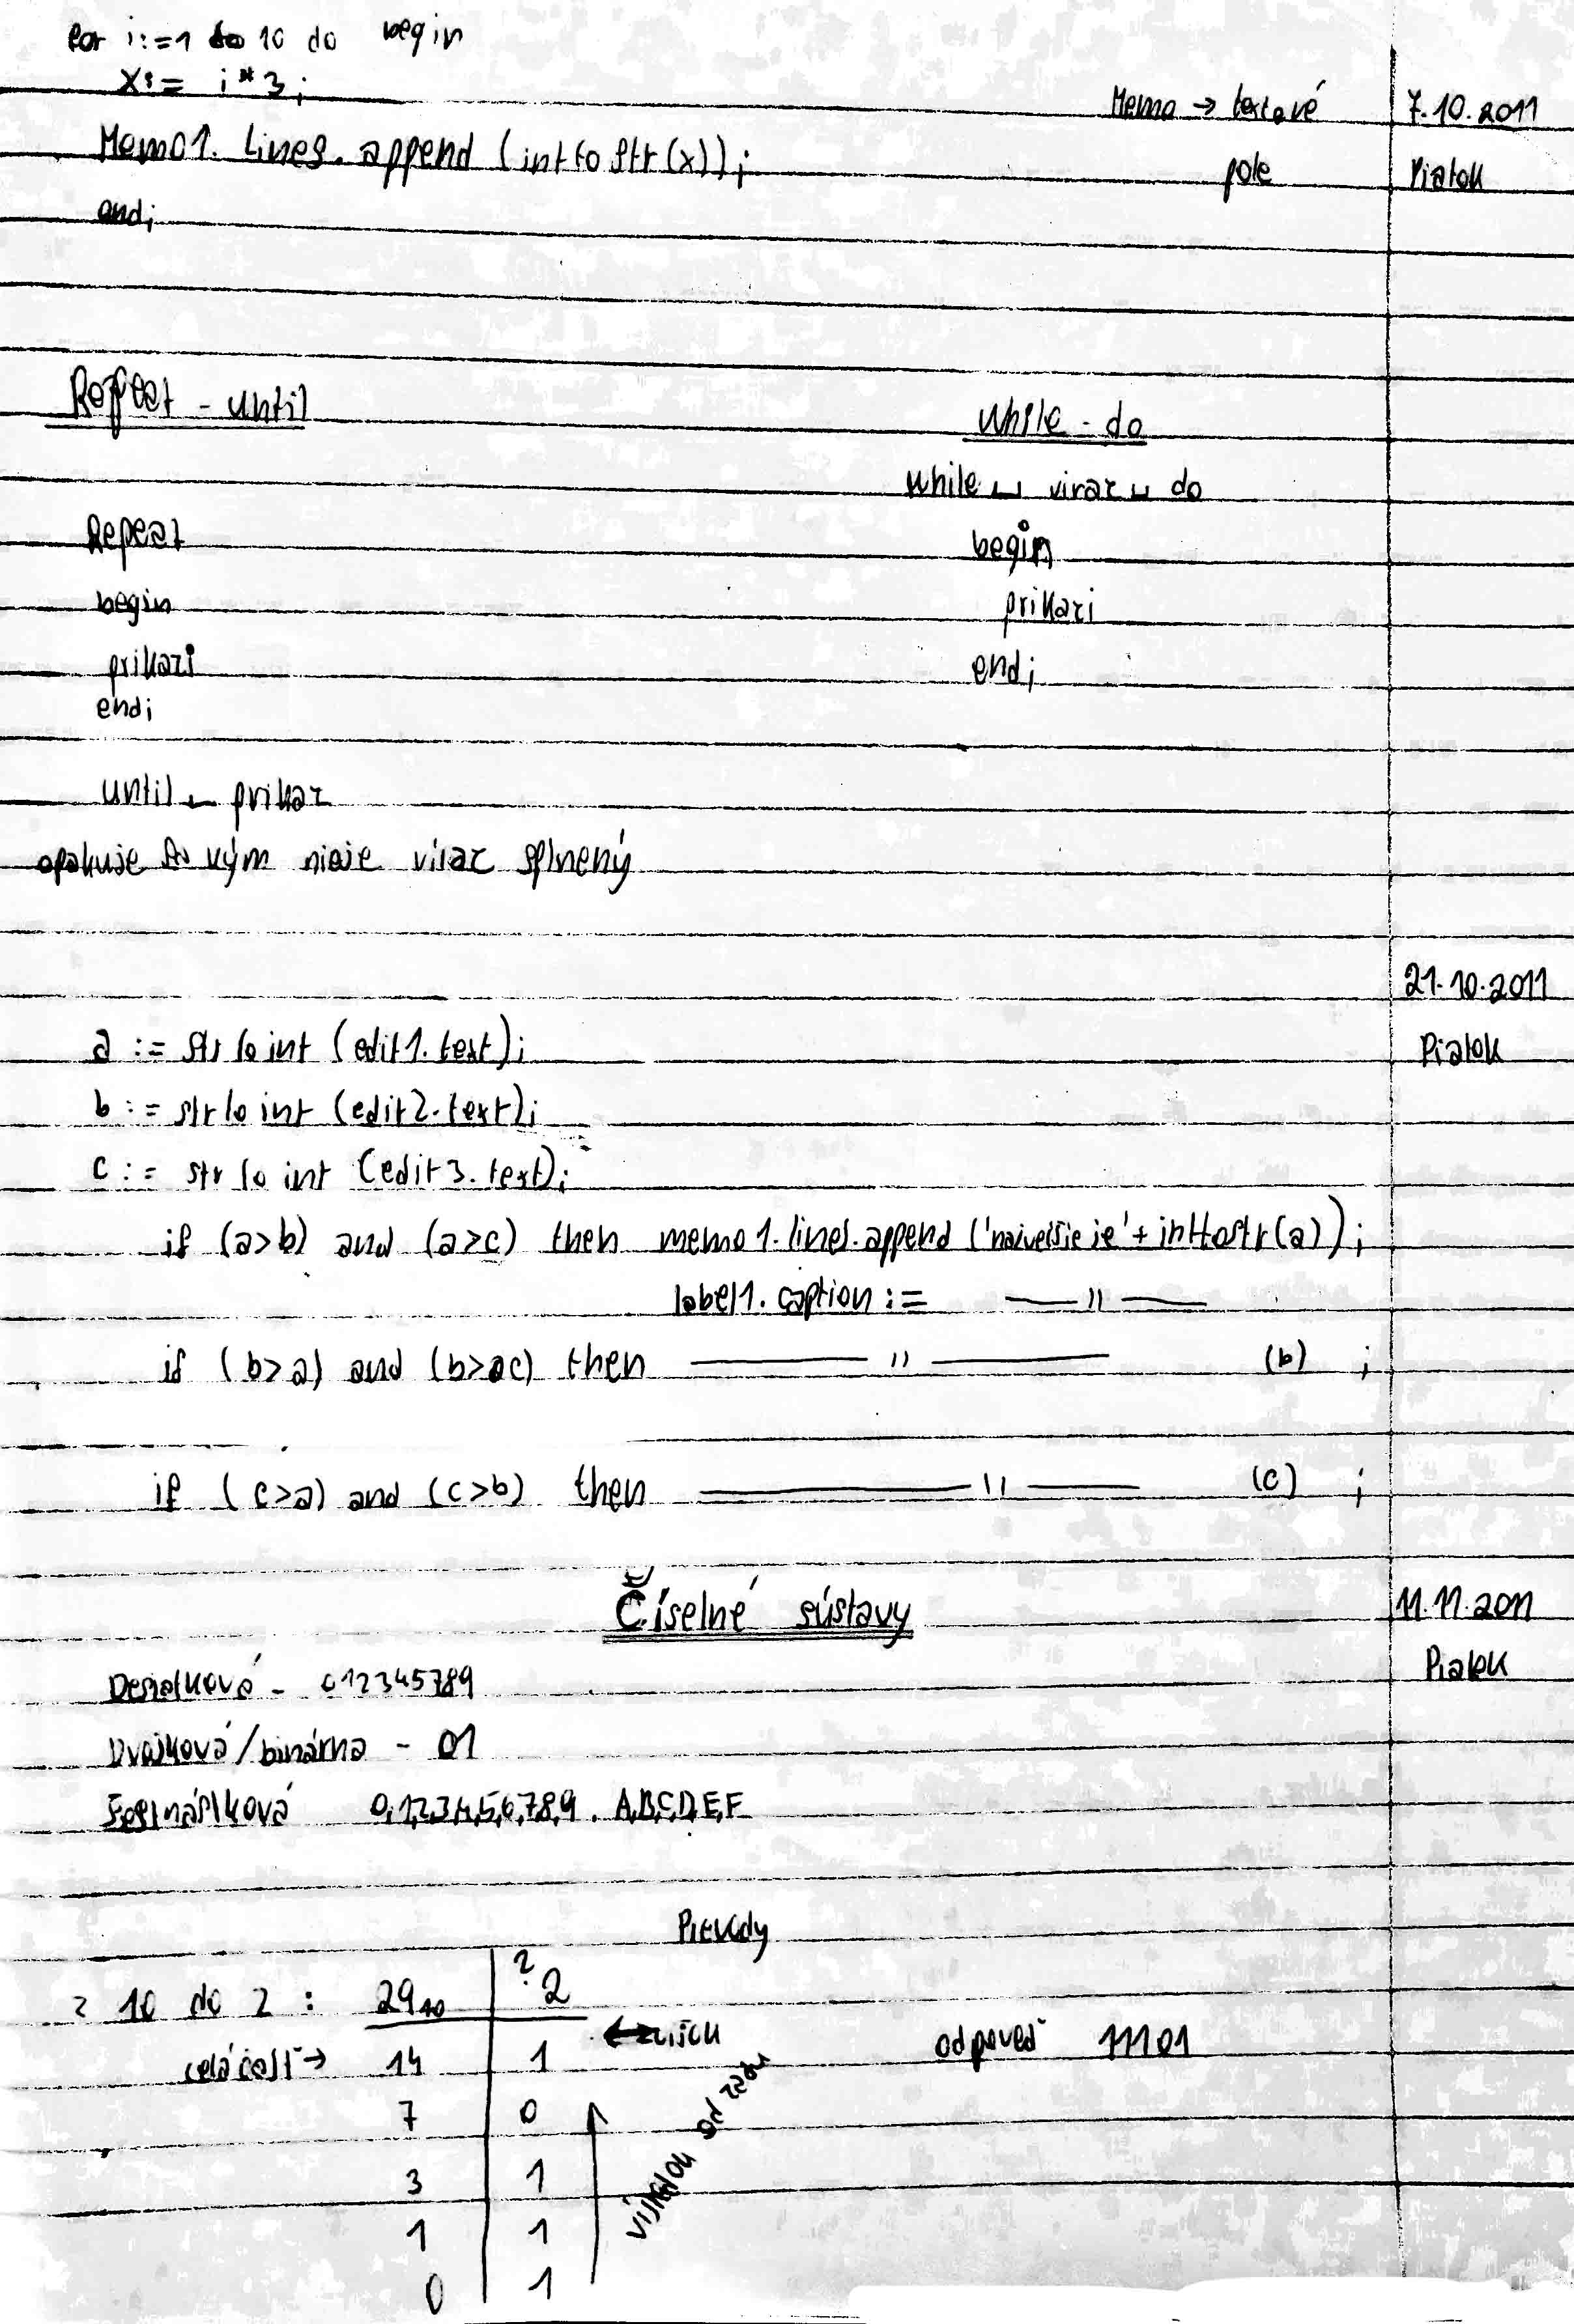 for i:=1 to 10 do begin
x:= i*3;
Memo → textové 7.10.2011
Memo1. Lines. append (inttostr(x));
pole Piatok
end;
Repeat - until
While - do
while ␣ viraz ␣ do
Repeat
begin
begin
prikazi
prikazi
end;
end;
until ␣ prikaz
opakuje kým nieje viraz splnený
21.10.2011
a := strtoint (edit1.text);
Piatok
b := strtoint (edit2.text);
c := strtoint (edit3.text);
if (a>b) and (a>c) then memo1.lines.append ('najvetšie je' + inttostr(a));
label1. caption := —— " ——
if (b>a) and (b>c) then —— " —— (b) ;
if (c>a) and (c>b) then —— " —— (c) ;
Číselné sústavy 11.11.2011
Piatok
Desiatková - 012345789
Dvojková/binárna - 01
Šestnástková 0,1,2,3,4,5,6,7,8,9. A,B,C,D,E,F
Prevody
z 10 do 2 : 29₁₀ ?2
← zvišok
odpoveď 11101
celá časť → 14 1
7 0
3 1
1 1
0 1
výsledok od zadu